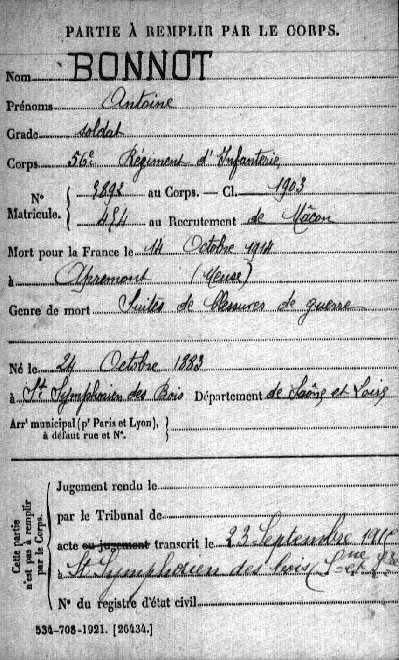 PARTIE À REMPLIR PAR LE CORPS.
Nom BONNOT
Prénoms Antoine
Grade soldat
Corps 56e Régiment d'Infanterie
N° Matricule. { 3892 au Corps. — Cl. 1903
454 au Recrutement de Mâcon
Mort pour la France le 14 Octobre 1914
à Apremont (Meuse)
Genre de mort Suites de blessures de guerre
Né le 24 Octobre 1883
à St Symphorien des Bois Département de Saône et Loire
Arrt municipal (pr Paris et Lyon), à défaut rue et N°. }
Cette partie n'est pas à remplir par le Corps.
Jugement rendu le
par le Tribunal de
acte ou jugement transcrit le 23 Septembre
à St Symphorien des bois (Sne et Lre
N° du registre d'état civil
534-708-1921. [26434.]